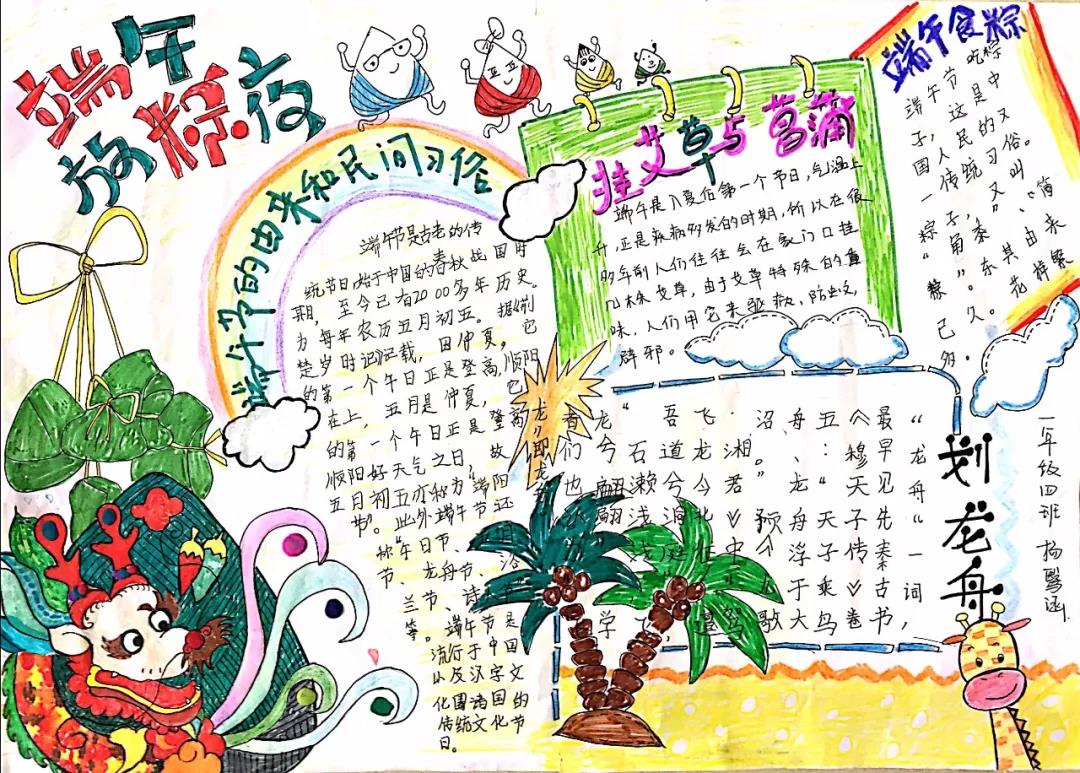 端午
放粽假
端午节的由来和民间习俗
端午节是古老的传
统节日,始于中国的春秋战国时
期,至今已有2000多年历史。
为每年农历五月初五。据《荆
楚岁时记》记载,因仲夏。它
的第一个午日正是登高,顺阳
在上,五月是仲夏,它
的第一个午日正是登高
顺阳好天气之日,故
五月初五亦称为"端阳
节"。此外端午节还
称"午日节、
节、龙舟节、浴
兰节、诗
等。端午节是
流行于中国
以及汉字文
化圈诸国的
传统文化节
日。
挂艾草与菖蒲
端午是入夏后第一个节日,气温上
升,正是疾病多发的时期,所以在很
多年前人们往往会在家门口挂
几株艾草,由于艾草特殊的
味,人们用它来驱赦,防虫蚊,
辟邪。
端午食粽
端午节吃粽
子,这是中
国人民的又
一传统习俗。
粽子,又叫
"角黍"、"筒
粽"。其由来
已久。花样繁
多。
划龙舟
"龙舟"一词,
最早见先秦古书,
《穆天子传》卷
五:"天子乘鸟
舟、龙舟浮于大
沼。"
飞龙兮
湘君
吾道兮洞
石濑兮浅浅,
龙兮翩翩
一年级四班 杨